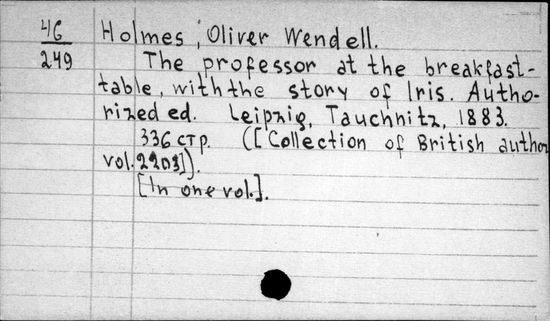 46
249
Holmes, Oliver Wendell.
The professor at the breakfast-
table, with the story of Iris. Autho-
rized ed. Leipzig, Tauchnitz, 1883.
336 стр. ([Collection of British author
vol. 2203]).
[In one vol.].